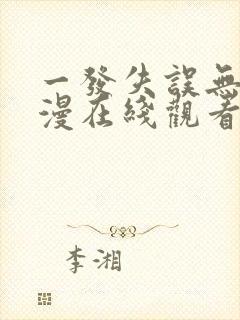 一發失誤無
漫在綫觀看
李湘